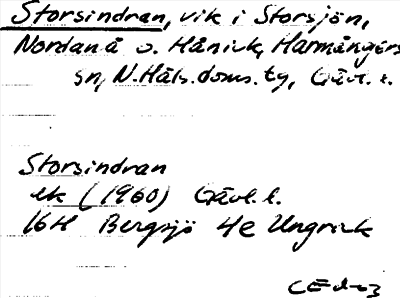 Storsindran, vik i Storsjön,
Nordanå o. Hånick, Harmångers
sn, N. Häls. doms. tg, Gävl. l.
Storsindran
ek (1960) Gävl. l.
16H Bergsjö 4e Ungrick